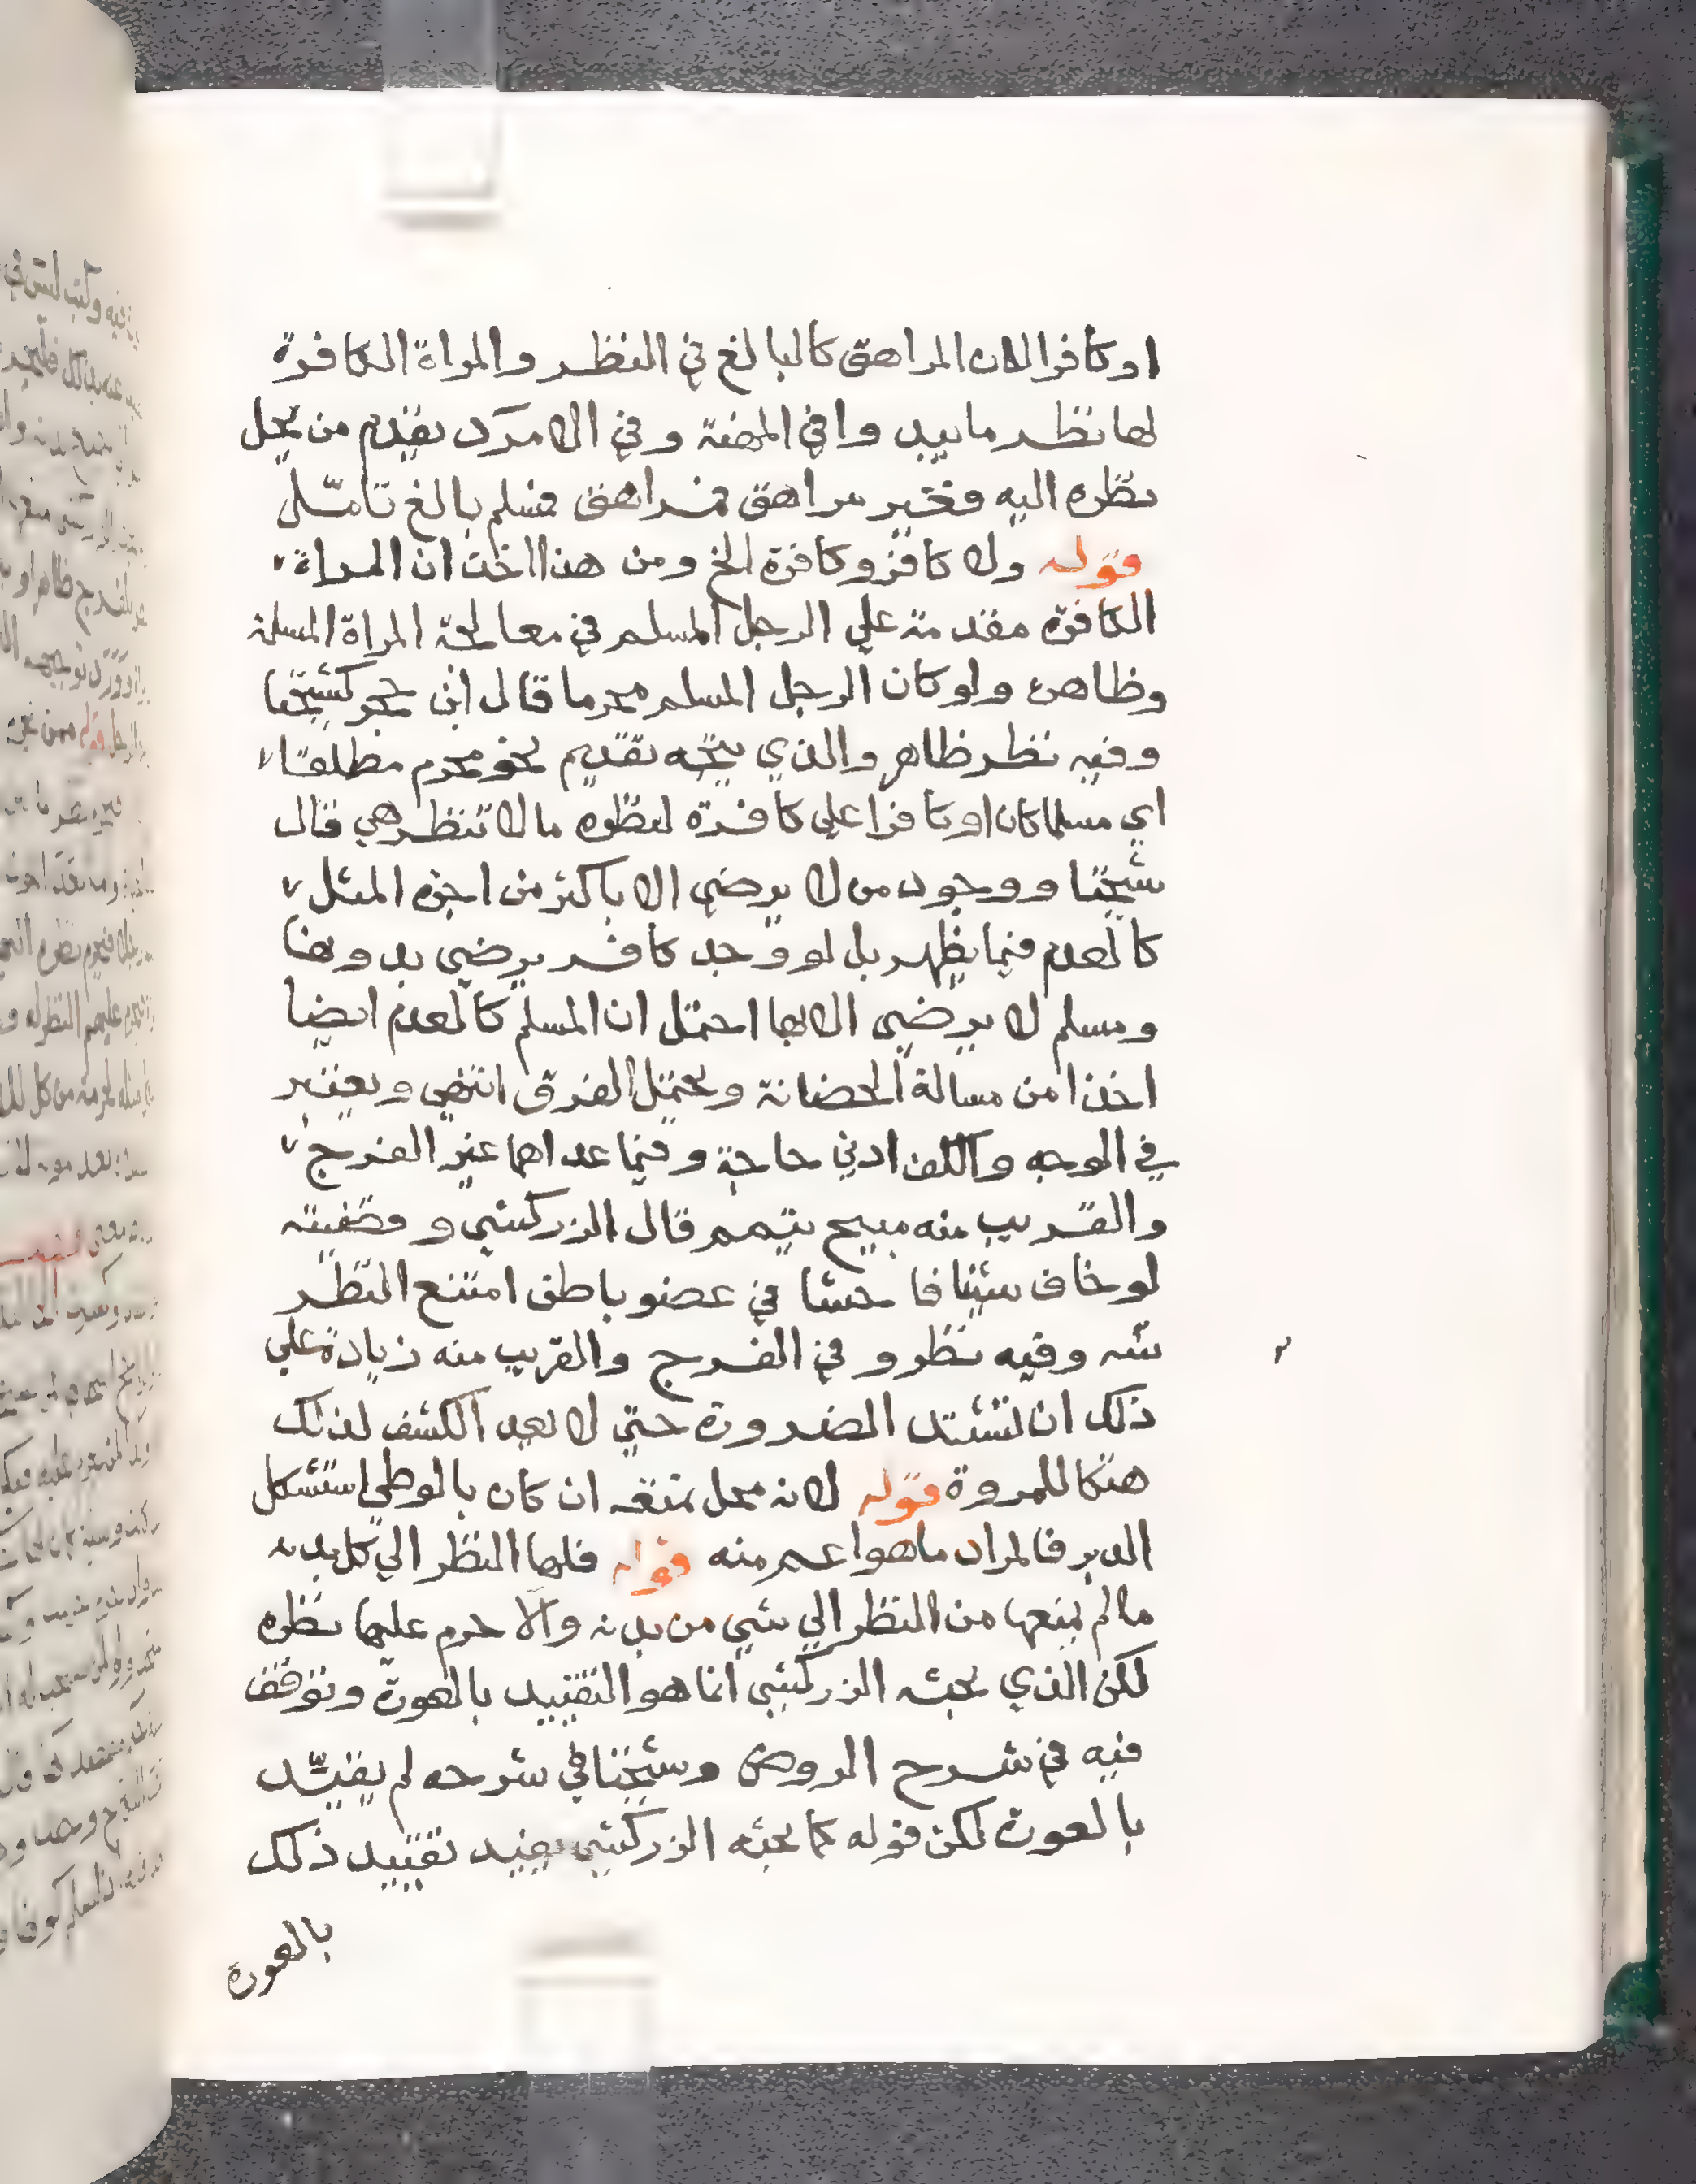 او كافرا لان المراهق كالبالغ في النظر والمراة الكافرة
لها نظر ما يبدوا في المهنة وفي الامرد يقدم من يحل
نظره اليه فغير مراهق فمراهق فمسلم بالغ تامل
قوله ولا كافر وكافرة الخ ومن هذا اخذ ان المراة
الكافرة مقدمة علي الرجل المسلم في معالجة المراة المسلمة
وظاهره ولو كان الرجل المسلم محرما قال ابن حجر كشيخنا
وفيه نظر ظاهر والذي يتجه تقديم نحو محرم مطلقا
اي مسلما كان او كافرا علي كافرة لنظره ما لا تنظر هي قال
شيخنا ووجود من لا يرضي الا باكثر من اجرة المثل
كالعدم فيما يظهر بل لو وجد كافر يرضي بدونها
ومسلم لا يرضي الا بها احتمل ان المسلم كالعدم ايضا
اخذا من مسالة الحضانة ويحتمل الفرق انتهي ويعتبر
في الوجه والكف ادني حاجة وفيما عداهما غير الفرج
والقريب منه مبيح تيمم قال الزركشي وقضيته
لو خاف شينا فاحشا في عضو باطن امتنع النظر
بسببه وفيه نظر وفي الفرج والقريب منه زيادة علي
ذلك ان تشتد الضرورة حتي لا يعد الكشف لذلك
هتكا للمروة قوله لانه محل تمتعه ان كان بالوطي استشكل
الدبر فالمراد ما هو اعم منه قوله فلها النظر الي كل بدنه
ما لم يمنعها من النظر الي شي من بدنه والا حرم عليها نظره
لكن الذي بحثه الزركشي انما هو التقييد بالعورة وتوقف
فيه في شرح الروض وشيخنا في شرحه لم يقيد
بالعورة لكن قوله كما بحثه الزركشي يفيد تقييد ذلك
بالعورة